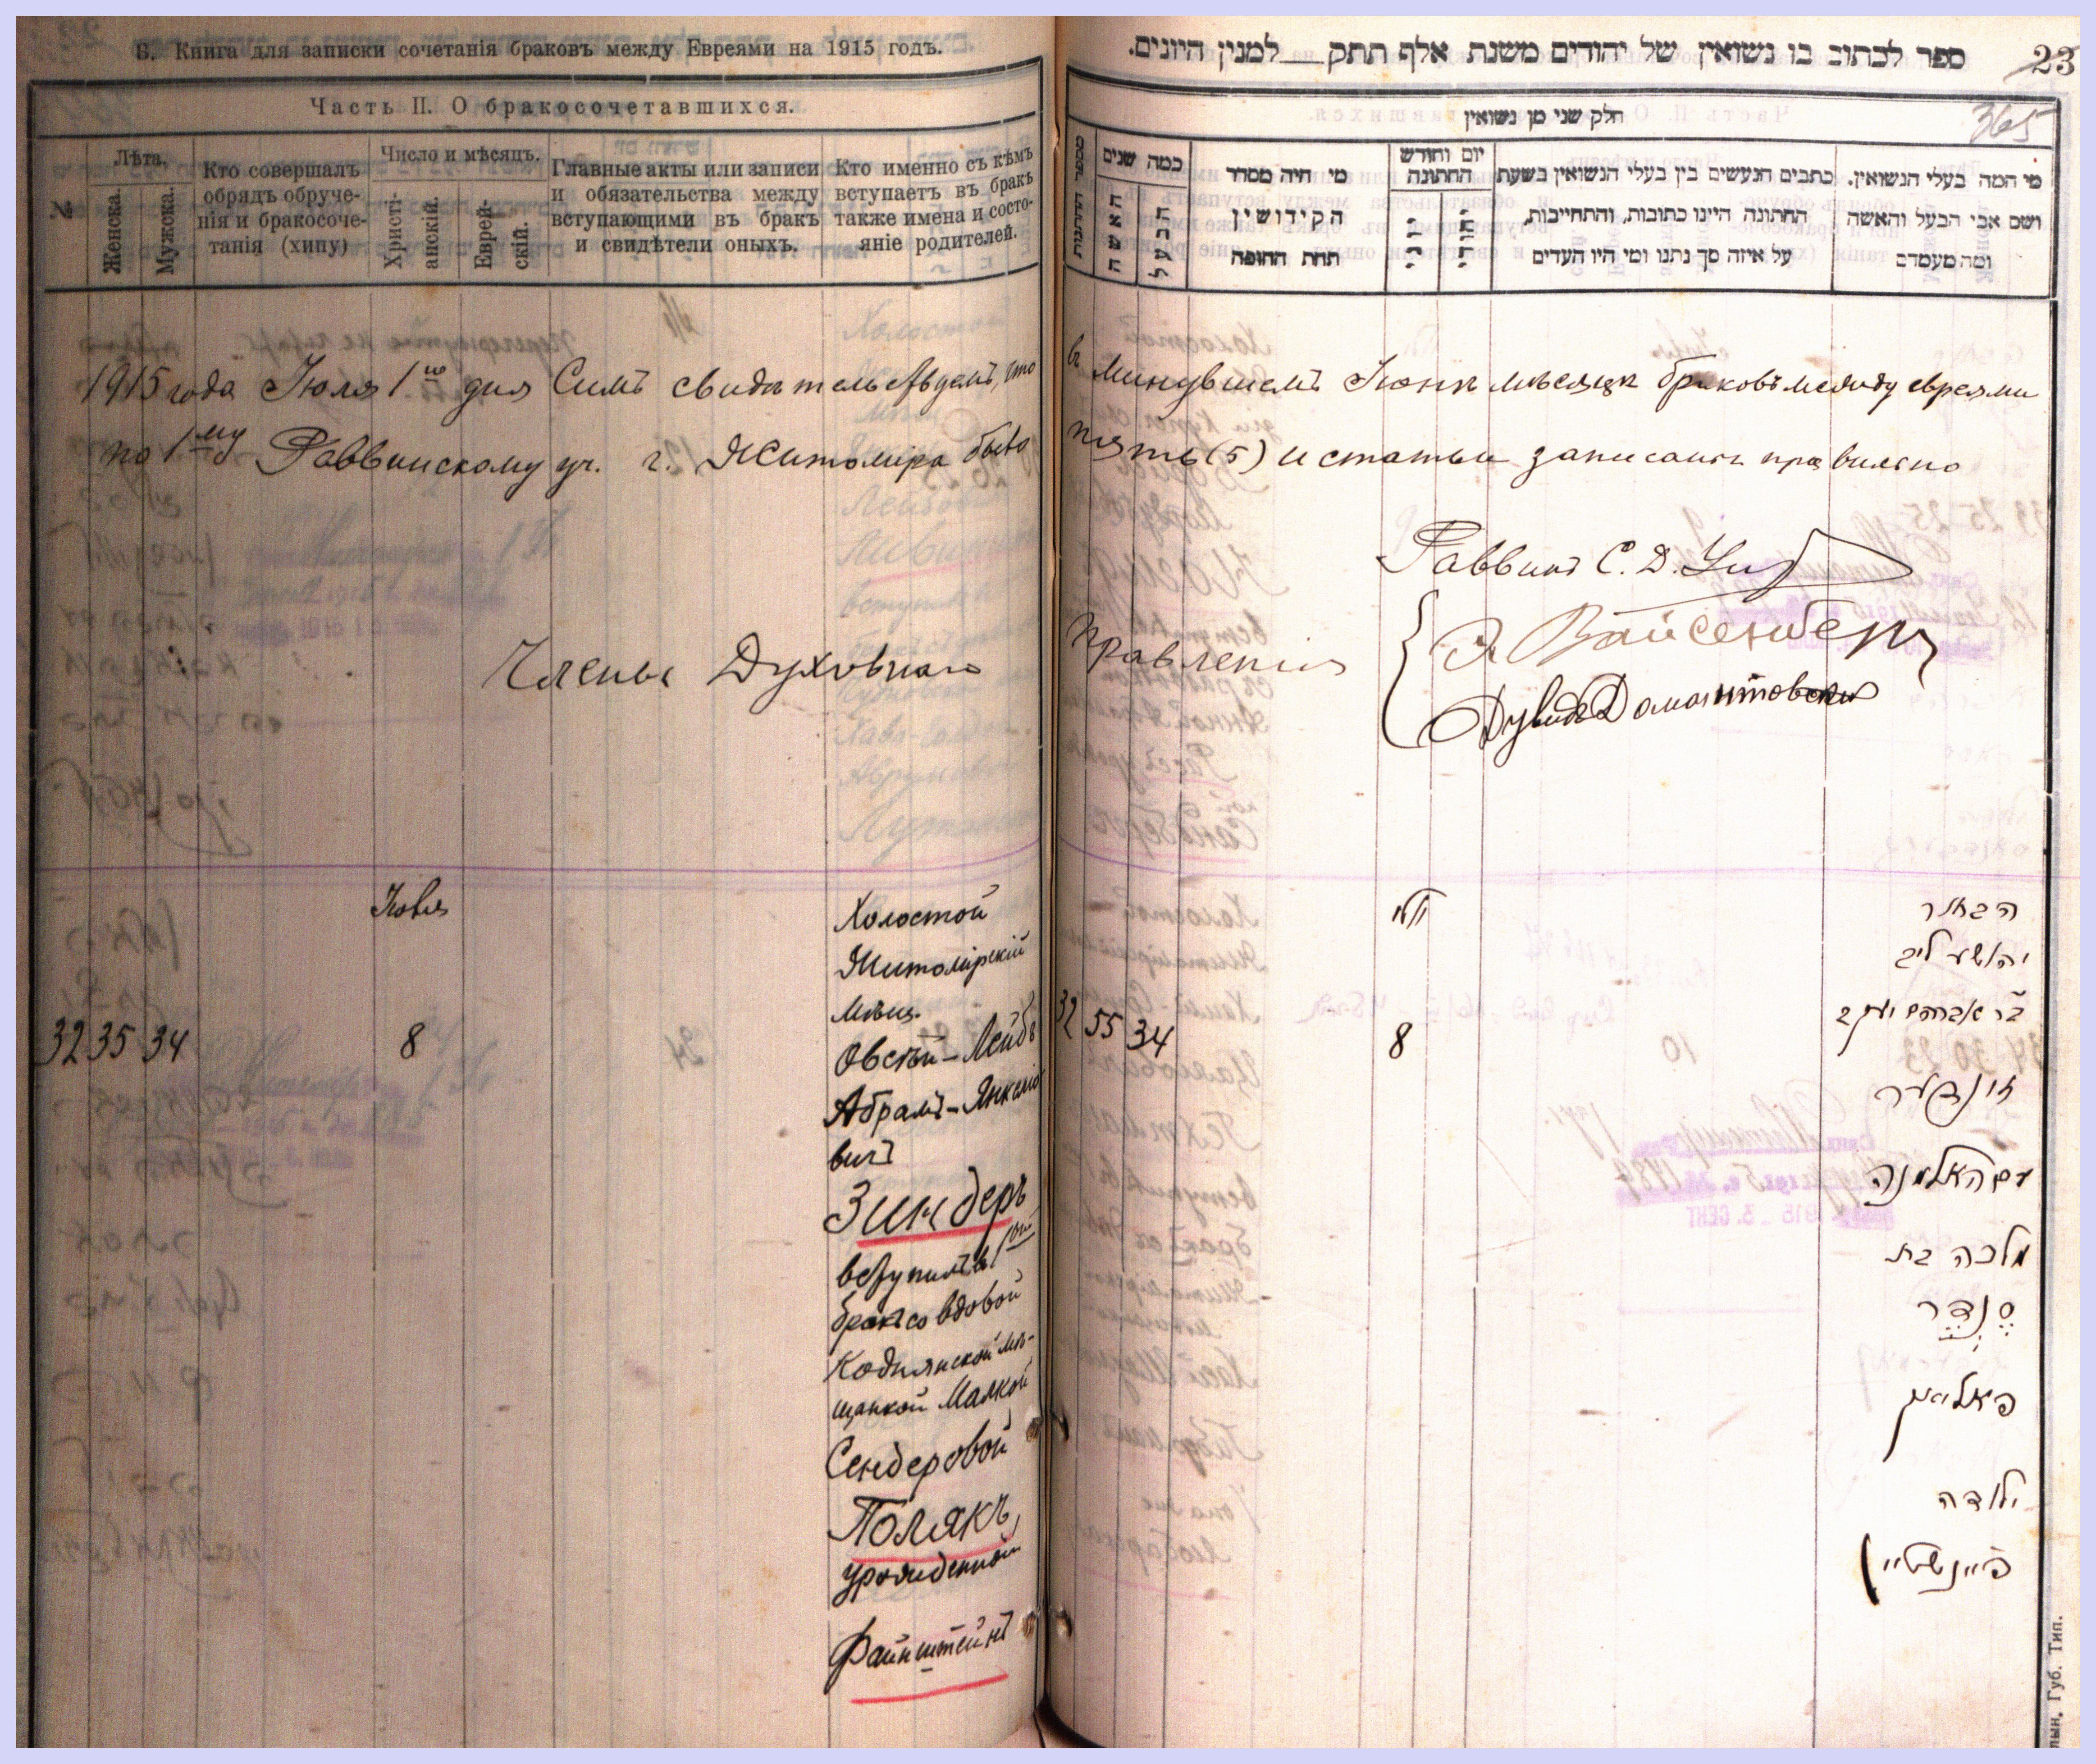 Б. Книга для записки сочетанія браковъ между Евреями на 1915 годъ.
Часть II. О бракосочетавшихся.
№
Лѣта.
Женска.
Мужска.
Кто совершалъ
обрядъ обруче-
нія и бракосоче-
танія (хипу)
Число и мѣсяцъ.
Христі-
анскій.
Еврей-
скій.
Главные акты или записи
и обязательства между
вступающими въ бракъ
и свидѣтели оныхъ.
Кто именно съ кѣмъ
вступаетъ въ бракъ
также имена и состо-
яніе родителей.
1915 года Іюля 1го дня Симъ свидѣтельствуемъ, что
по 1му Раввинскому уч. г. Житоміра было
Члены Духовнаго
Іюля
32 35 34
8
Холостой
Житомірскій
мѣщ.
Овсѣй-Лейбъ
Абрамъ-Янкелио
вичъ
Зиндеръ
вступилъ в 1ый
бракъ со вдовой
Коднянской мѣ-
щанкой Малкой
Сендеровой
Полякъ,
урожденной
Файнштейнъ
ספר לכתוב בו נשואין של יהודים משנת אלף תתק למנין היונים.
23
365
חלק שני מן נשואין
מספר החתונות
כמה שנים
האשה
הבעל
מי היה מסדר
הקידושין
תחת החופה
יום וחודש
החתונה
כתבים הנעשים בין בעלי הנשואין בשעת
החתונה היינו כתובות, והתחייבות,
על איזה סך נתנו ומי היו העדים
מי המה בעלי הנשואין.
ושם אבי הבעל והאשה
ומה מעמדם
в минувшемъ Іюнѣ мѣсяцѣ браковъ между евреями
пять (5) и статьи записаны правильно
Раввинъ С. Д.
Правленія
Вайсенбергъ
Дувидъ Домонтовскій
יולי
32 55 34
8
הבחור
יהושע ליב
בר אברהם יעקב
זינדער
עם האלמנה
מלכה בת
סֶנְדֶר
פאליאק
ילודה
פיינשטיין
лын. Губ. Тип.